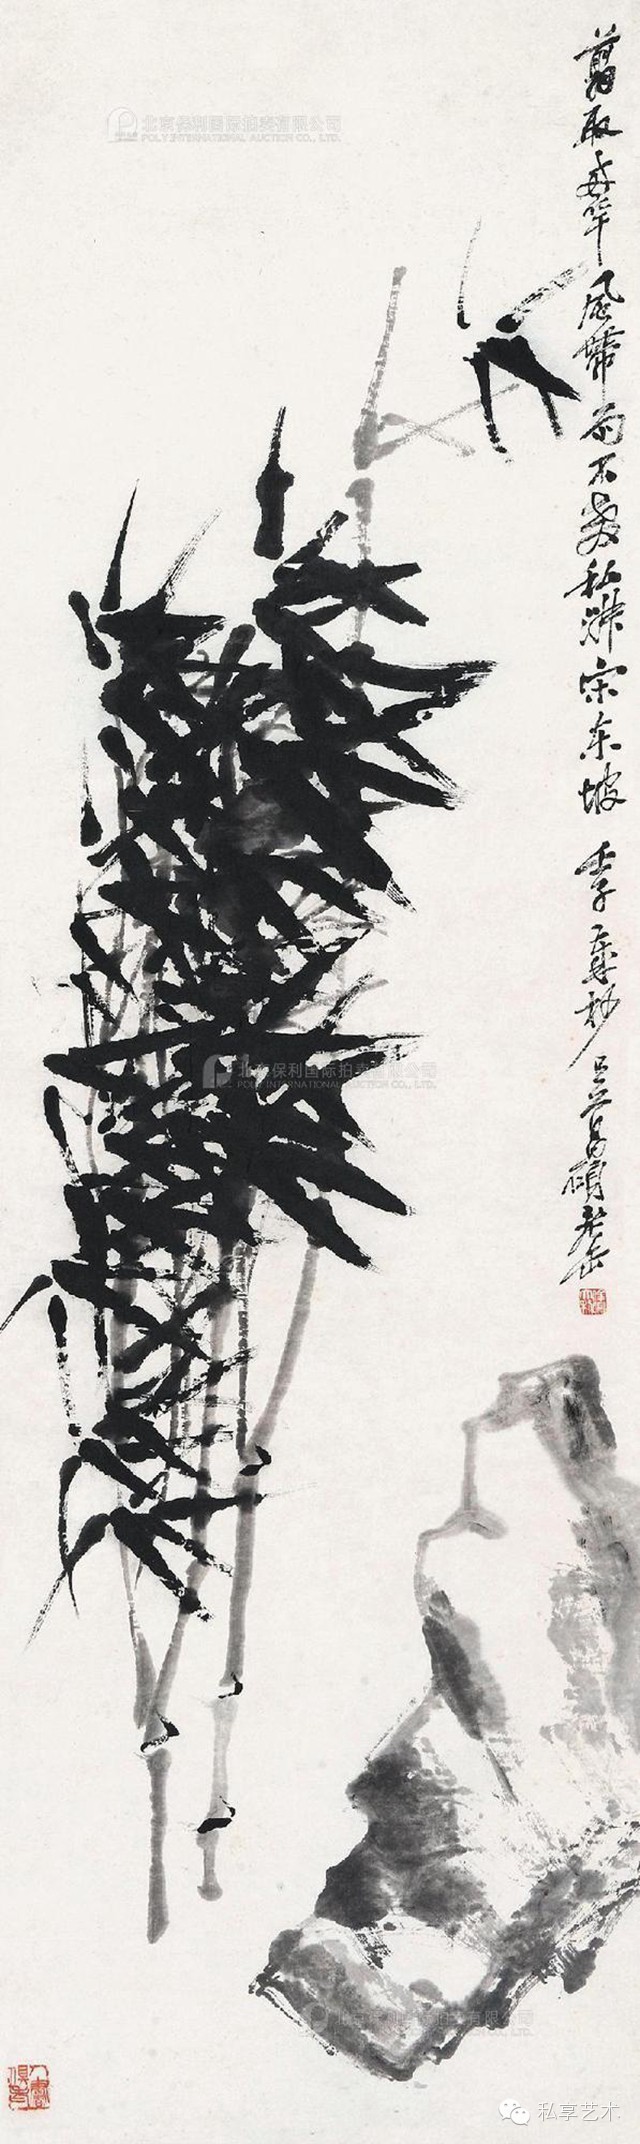 翦取風帶雨不私淑宋東坡 壬子歲杪 吳昌碩老缶
北京保利国际拍卖有限公司
POLY INTERNATIONAL AUCTION CO., LTD.
北京保利国际拍卖有限公司
POLY INTERNATIONAL AUCTION CO., LTD.
北京保利国际拍卖有限公司
POLY INTERNATIONAL AUCTION CO., LTD.
人書俱老
私享艺术